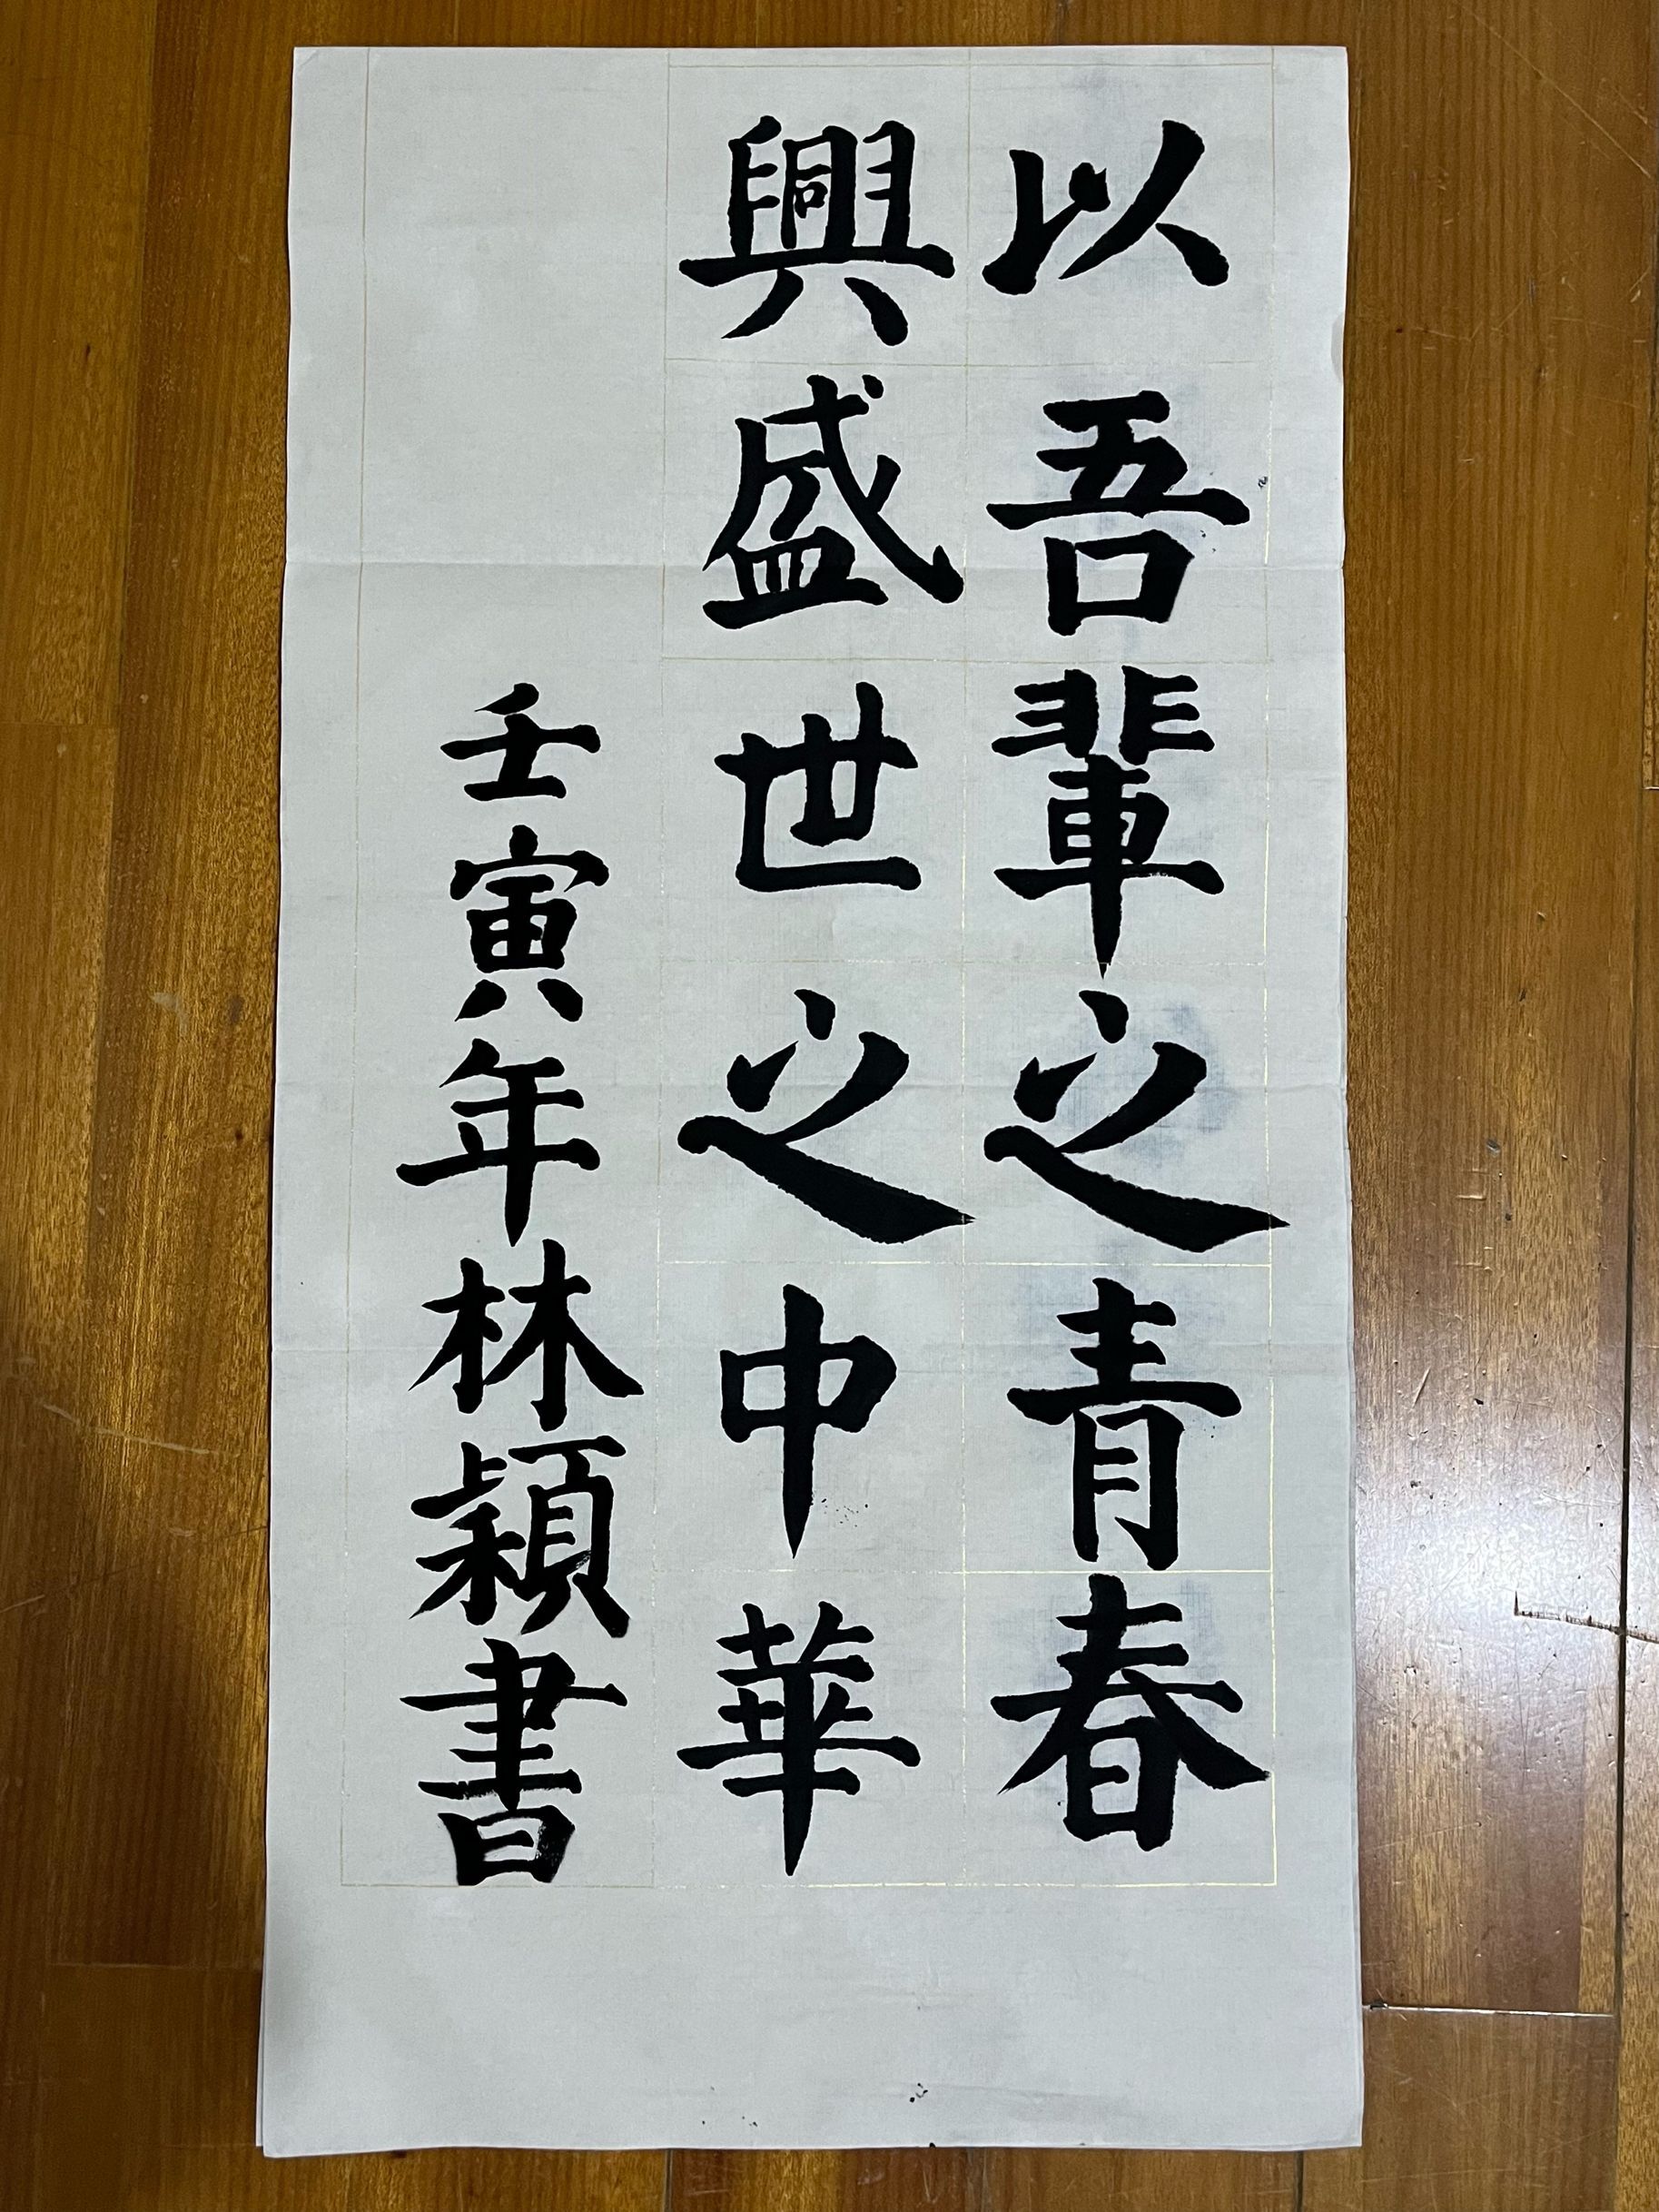 以吾輩之青春
興盛世之中華
壬寅年林穎書